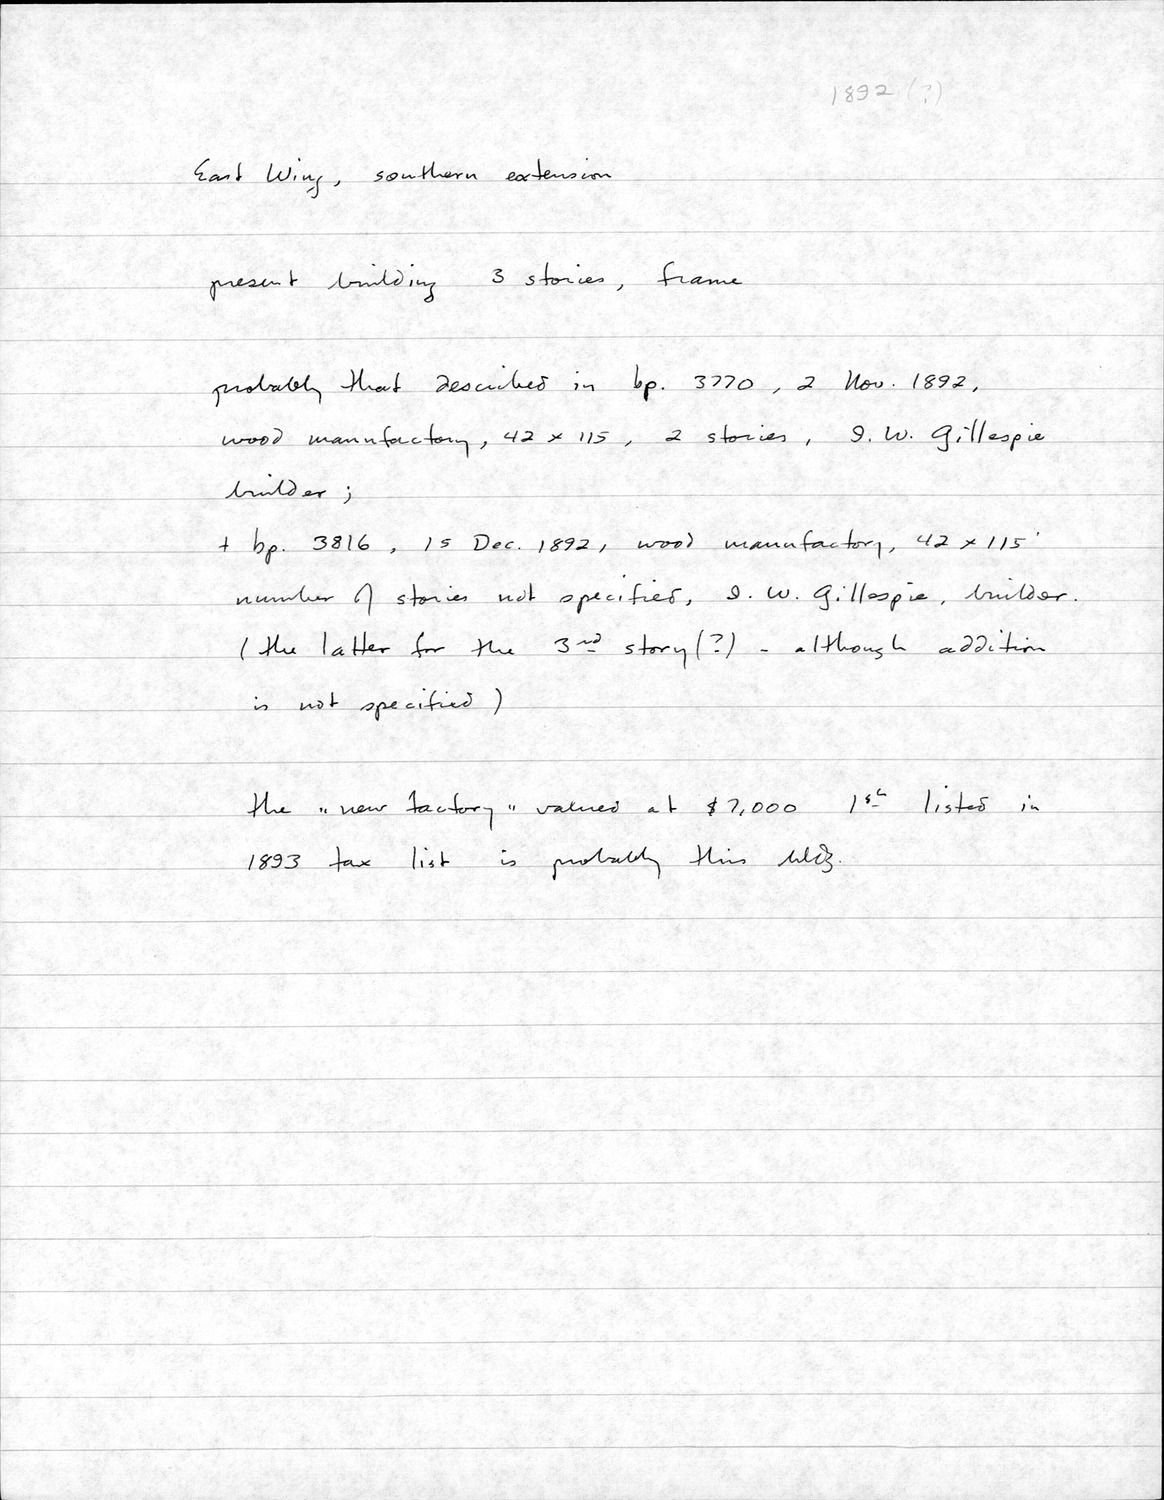 1892 (?)
East Wing, southern extension
present building 3 stories, frame
probably that described in bp. 3770, 2 Nov. 1892,
wood manufactory, 42 x 115, 2 stories, I. W. Gillespie
builder;
+ bp. 3816, 15 Dec. 1892, wood manufactory, 42 x 115'
number of stories not specified, I. W. Gillespie, builder.
(the latter for the 3rd story (?) - although addition
is not specified)
the "new factory" valued at $7,000 1st listed in
1893 tax list is probably this bldg.